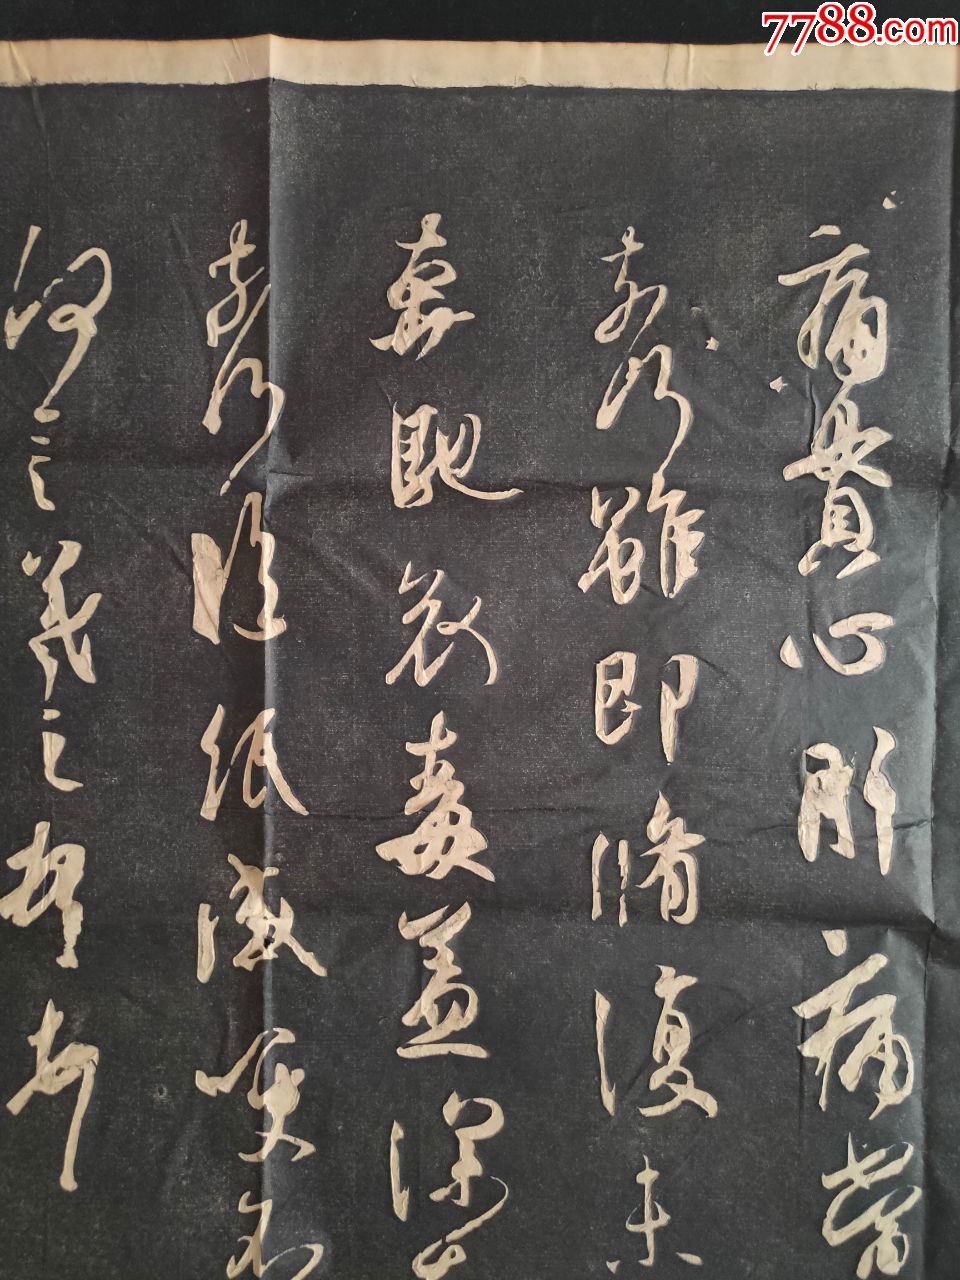 7788.com
痛貫心肝痛當
奈何雖即脩復未
奔馳哀毒益深
奈何臨紙感哽不
何言羲之頓首